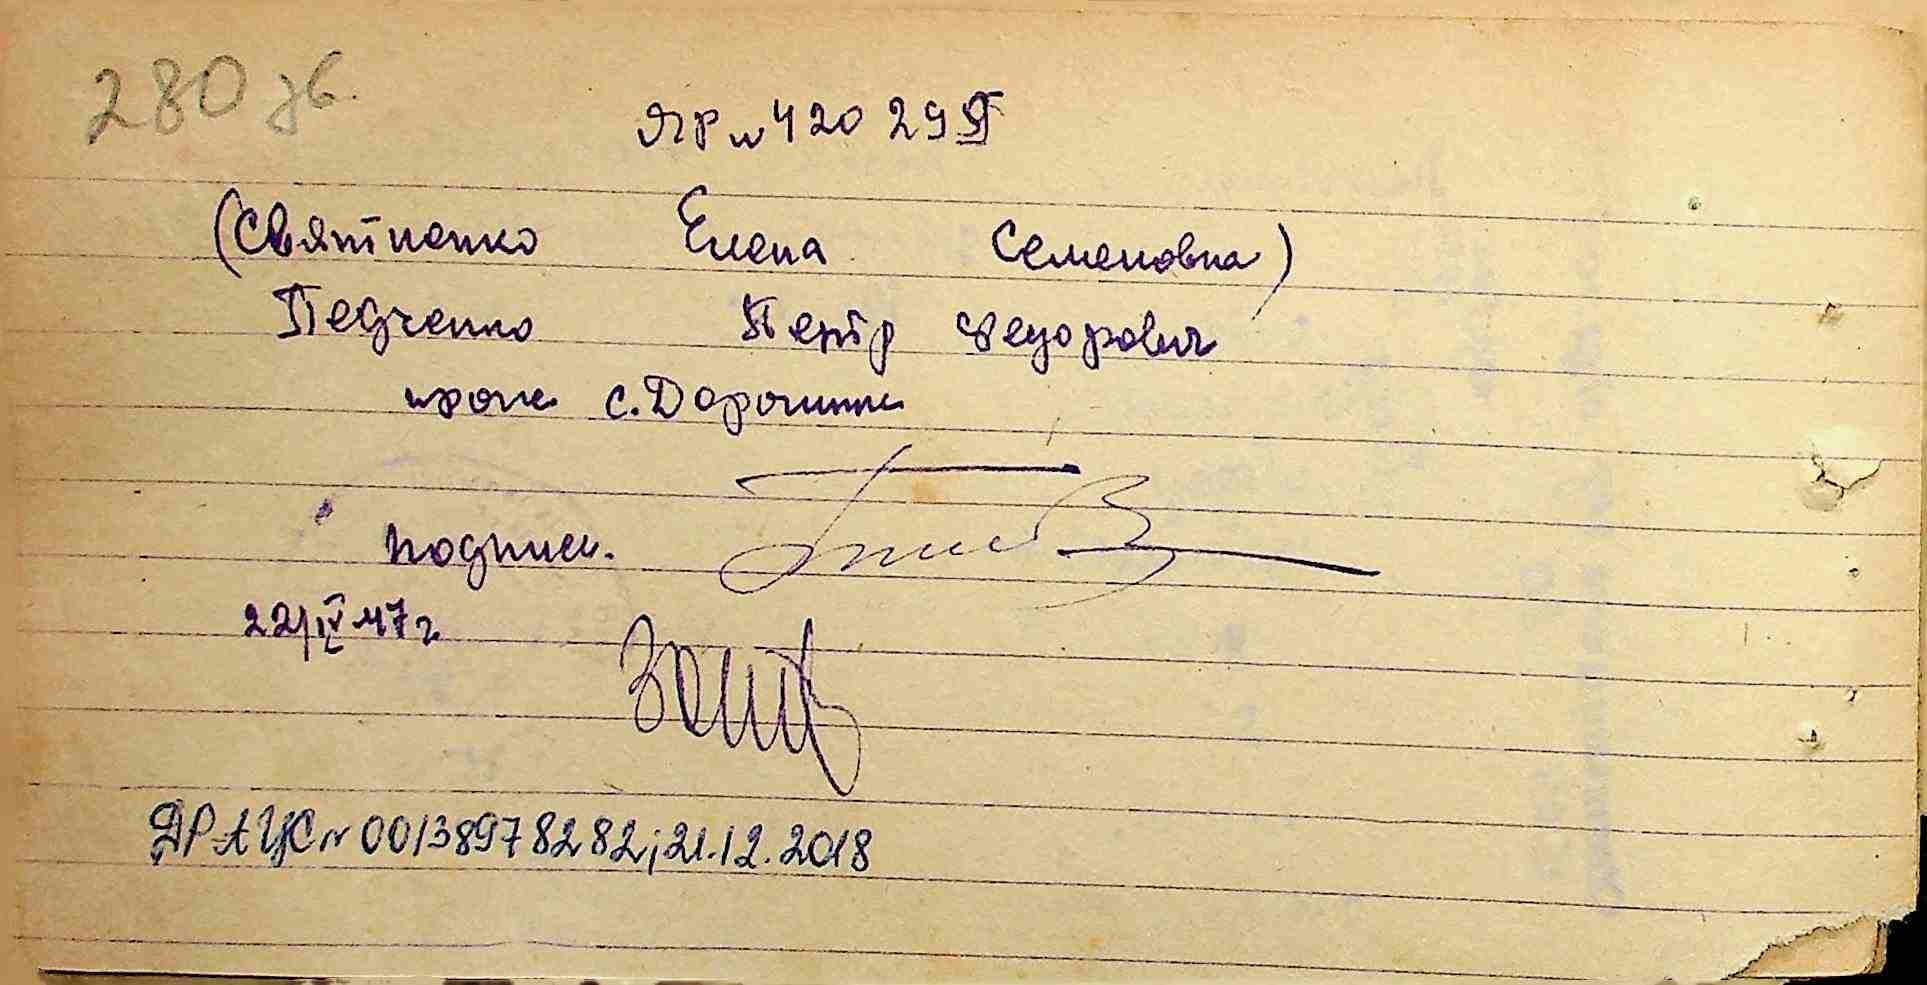 280 зв.
ЯГР № 420 29
(Святненко Елена Семеновна)
Педченко Петр Федорович
прож. с. Дорогинка
подписи.
22/IV 47 г
ДРАЦС № 00138978282; 21.12.2018